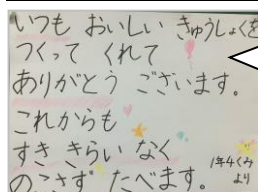 いつも おいしい きゅうしょくを
つくって くれて
ありがとう ございます。
これからも
すき きらい なく
のこさず たべます。
1年4くみ
より